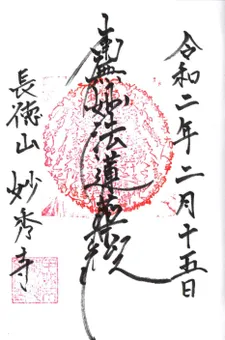 令和二年二月十五日
南無妙法蓮華経
長徳山 妙秀寺